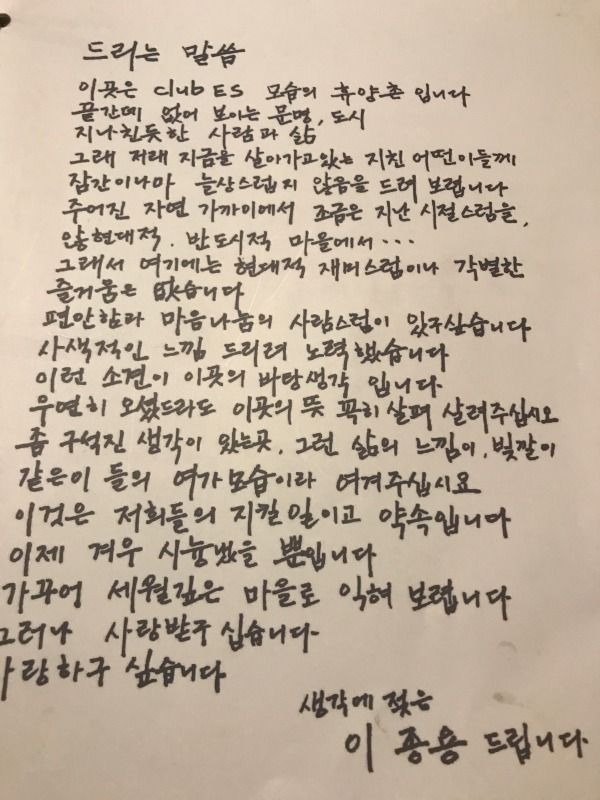 드리는 말씀
이곳은 club ES 모습의 휴양촌 입니다
끝간데 없어 보이는 문명, 도시
지나친듯한 사람과 삶
그래 저래 지금을 살아가고있는 지친 어떤이들께
잠간이나마 늘상스럽지 않음을 드려 보렵니다
주어진 자연 가까이에서 조금은 지난 시절스럼을,
않현대적. 반도시적 마을에서...
그래서 여기에는 현대적 재미스럼이나 각별한
즐거움은 없습니다
편안함과 마음나눔의 사람스럼이 있구싶습니다
사색적인 느낌 드리려 노력했습니다
이런 소견이 이곳의 바탕생각 입니다
우연히 오셨드라도 이곳의 뜻 꼭히 살펴 살려주십시오
좀 구석진 생각이 있는곳, 그런 삶의 느낌이, 빛깔이
같은이 들의 여가모습이라 여겨주십시요
이것은 저희들의 지킬일이고 약속입니다
이제 겨우 시늉냈을 뿐입니다
가꾸어 세월깊은 마을로 익혀 보렵니다
그러나 사랑받구 십습니다
사랑하구 싶습니다
생각에 젖은
이종용 드립니다